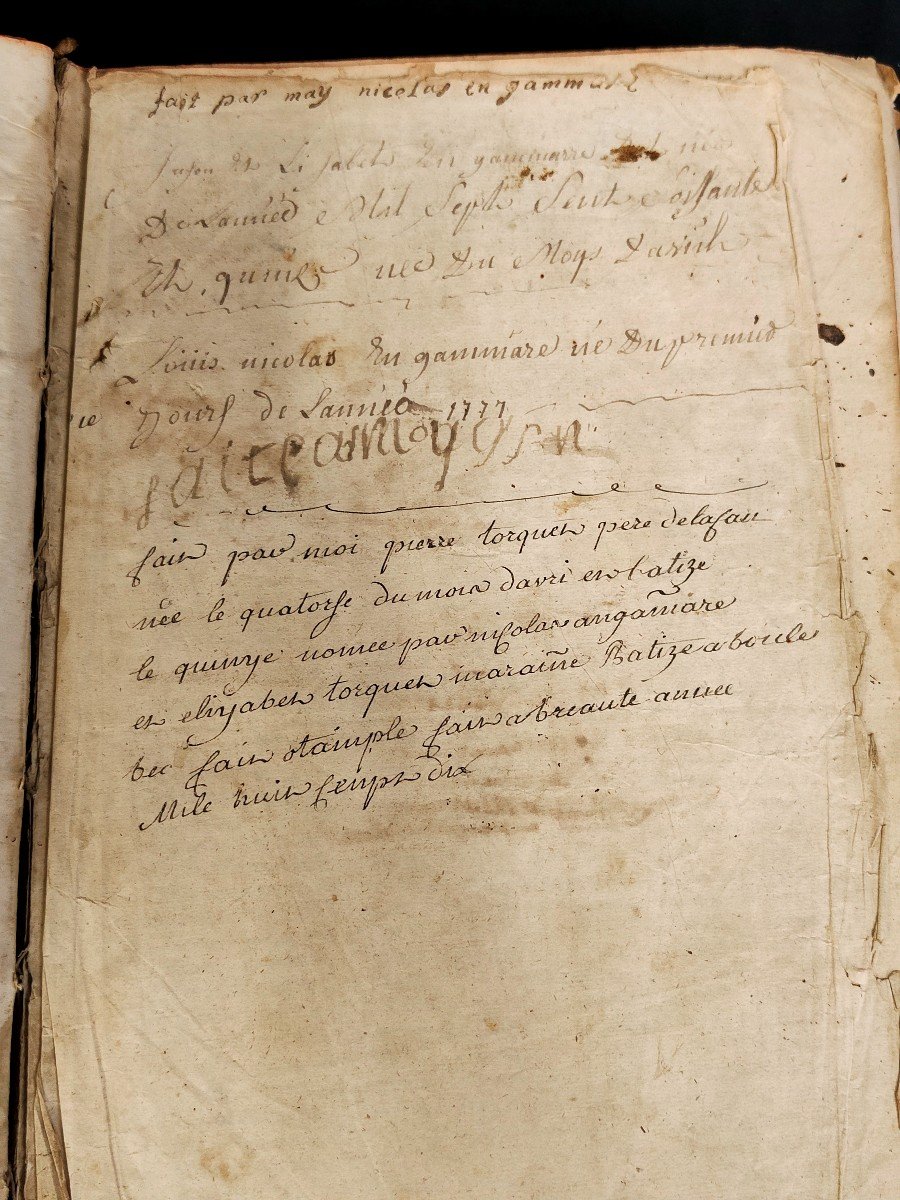 fait par may nicolas en gammare
Li sabeth En gammarre née
De Lannieé Mil Sept Sent Soissante
Et quinse neé Du Moys Davril
Louis nicolas En gammare né Du premieé
Jours de Lanneé 1777
fait par moi pierre torquet pere de lafan
née le quatorse du mois davri et batize
le quinze nomee par nicolas angamare
et elizabet torquet maraine Batize a boule
bec fait otample fait a breaute annee
Mile huit senpt dix